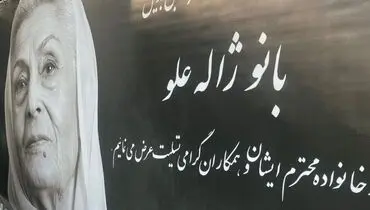 بانو ژاله علو
خانواده محترم ایشان و همکاران گرامی تسلیت عرض می نمائیم